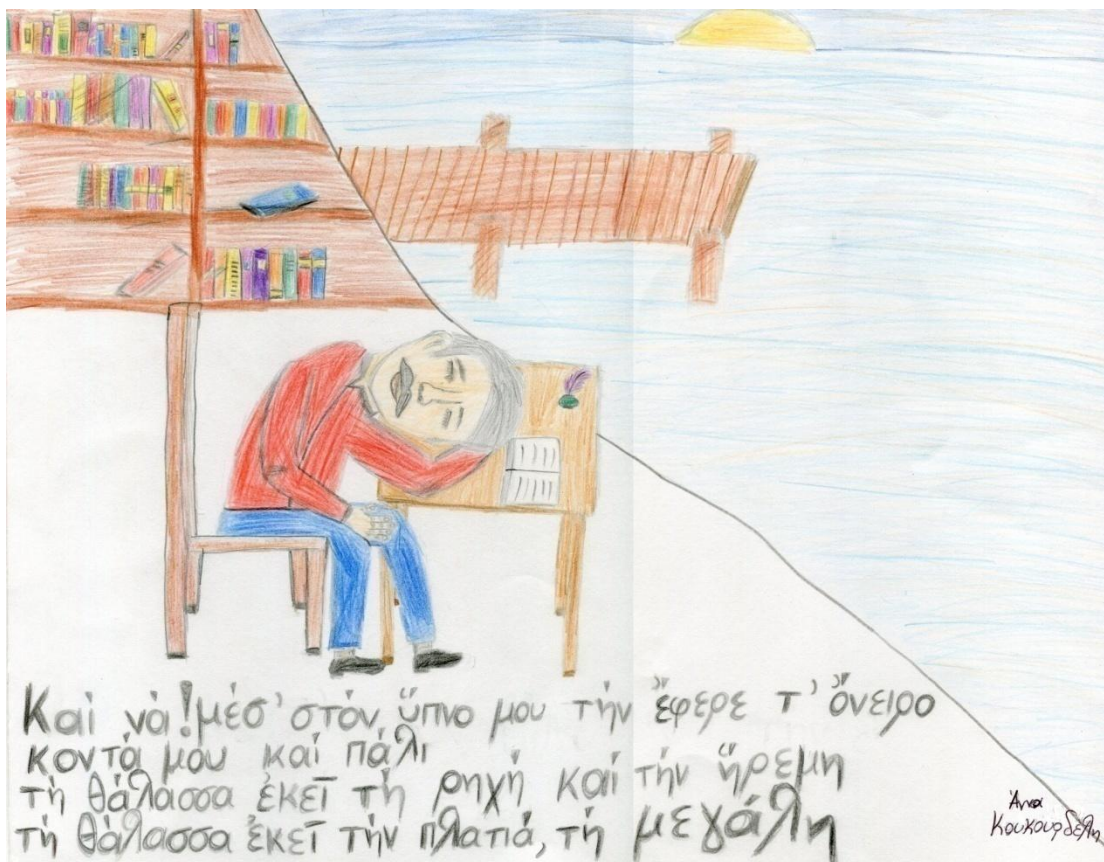 Καὶ νά! μέσ' στόν ὕπνο μου τήν ἔφερε τ' ὄνειρο
κοντά μου καί πάλι
τή θάλασσα ἐκεῖ τή ρηχή καί τήν ἤρεμη
τή θάλασσα ἐκεῖ τήν πλατιά, τή μεγάλη
Άννα
Κουκουρδέλη